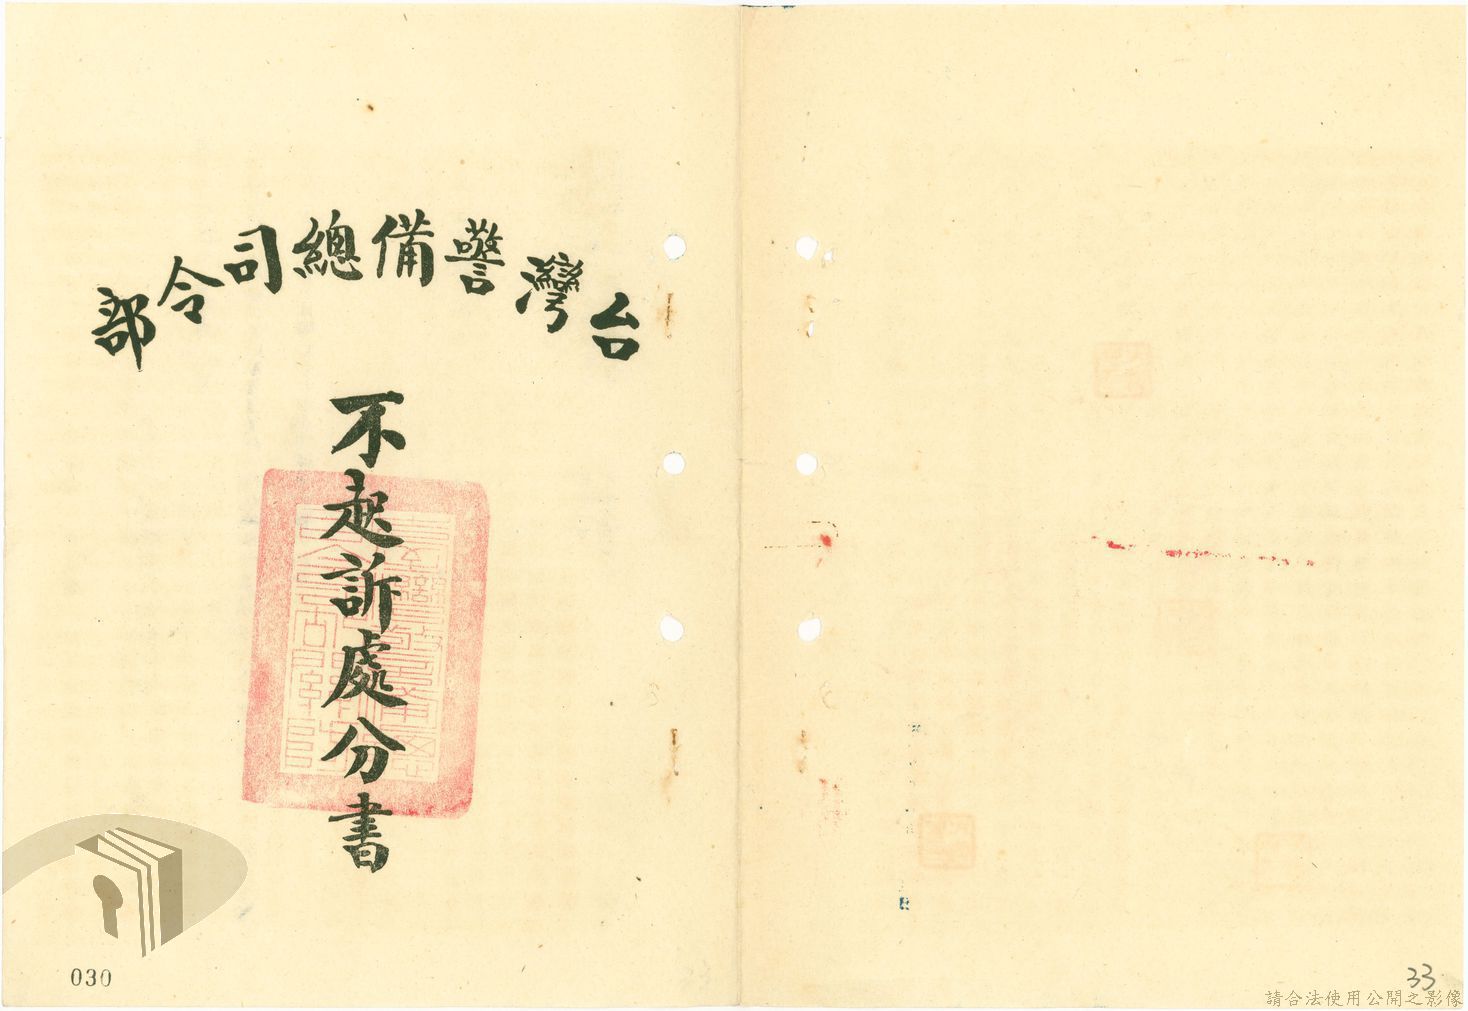 台灣警備總司令部
不起訴處分書
030
33
請合法使用公開之影像